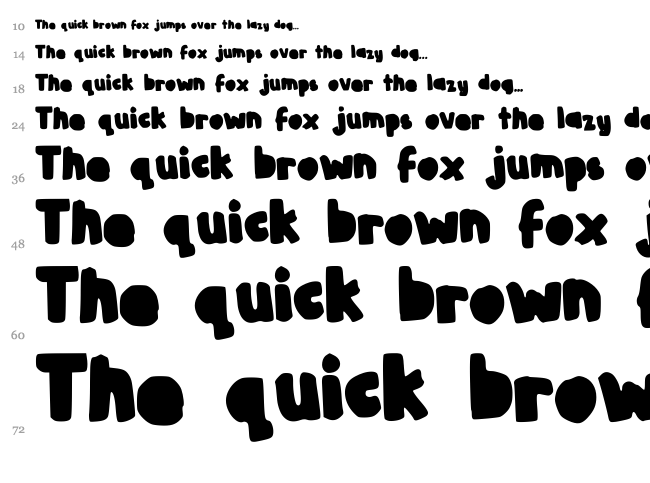 10 The quick brown fox jumps over the lazy dog...
14 The quick brown fox jumps over the lazy dog...
18 The quick brown fox jumps over the lazy dog...
24 The quick brown fox jumps over the lazy do
36 The quick brown fox jumps o
48 The quick brown fox j
60 The quick brown f
72 The quick brow